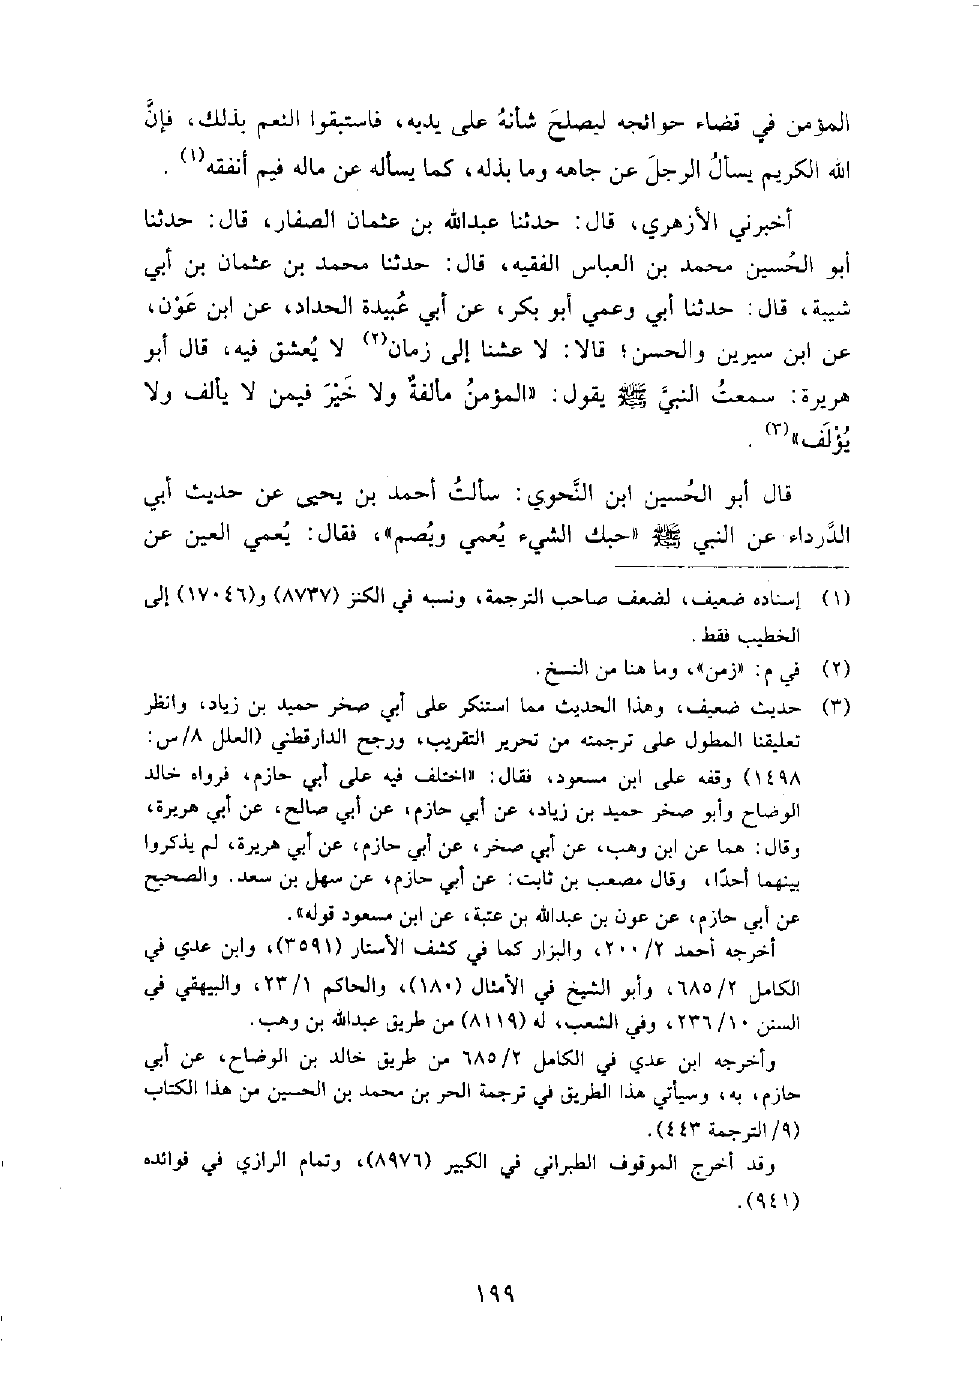 المؤمن في قضاء حوائجه ليصلحَ شأنهُ على يديه، فاستبقوا النعم بذلك، فإنَّ
الله الكريم يسألُ الرجلَ عن جاهه وما بذله، كما يسأله عن ماله فيم أنفقه(١) .
أخبرني الأزهري، قال: حدثنا عبدالله بن عثمان الصفار، قال: حدثنا
أبو الحُسين محمد بن العباس الفقيه، قال: حدثنا محمد بن عثمان بن أبي
شيبة، قال: حدثنا أبي وعمي أبو بكر، عن أبي عُبيدة الحداد، عن ابن عَوْن،
عن ابن سيرين والحسن؛ قالا: لا عشنا إلى زمان(٢) لا يُعشق فيه، قال أبو
هريرة: سمعتُ النبيَّ ﷺ يقول: «المؤمنُ مألفةٌ ولا خَيْرَ فيمن لا يألف ولا
يُؤْلَف»(٣) .
قال أبو الحُسين ابن النَّحوي: سألتُ أحمد بن يحيى عن حديث أبي
الدَّرداء عن النبي ﷺ «حبك الشيء يُعمي ويُصم»، فقال: يُعمي العين عن
(١) إسناده ضعيف، لضعف صاحب الترجمة، ونسبه في الكنز (٨٧٣٧) و(١٧٠٤٦) إلى
الخطيب فقط .
(٢) في م: «زمن»، وما هنا من النسخ.
(٣) حديث ضعيف، وهذا الحديث مما استنكر على أبي صخر حميد بن زياد، وانظر
تعليقنا المطول على ترجمته من تحرير التقريب، ورجح الدارقطني (العلل ٨/س:
١٤٩٨) وقفه على ابن مسعود، فقال: «اختلف فيه على أبي حازم، فرواه خالد
الوضاح وأبو صخر حميد بن زياد، عن أبي حازم، عن أبي صالح، عن أبي هريرة،
وقال: هما عن ابن وهب، عن أبي صخر، عن أبي حازم، عن أبي هريرة، لم يذكروا
بينهما أحدًا، وقال مصعب بن ثابت: عن أبي حازم، عن سهل بن سعد. والصحيح
عن أبي حازم، عن عون بن عبدالله بن عتبة، عن ابن مسعود قوله».
أخرجه أحمد ٢/ ٢٠٠، والبزار كما في كشف الأستار (٣٥٩١)، وابن عدي في
الكامل ٢/ ٦٨٥، وأبو الشيخ في الأمثال (١٨٠)، والحاكم ١/ ٢٣، والبيهقي في
السنن ١٠/ ٢٣٦، وفي الشعب، له (٨١١٩) من طريق عبدالله بن وهب.
وأخرجه ابن عدي في الكامل ٢/ ٦٨٥ من طريق خالد بن الوضاح، عن أبي
حازم، به، وسيأتي هذا الطريق في ترجمة الحر بن محمد بن الحسين من هذا الكتاب
(٩/ الترجمة ٤٤٣).
وقد أخرج الموقوف الطبراني في الكبير (٨٩٧٦)، وتمام الرازي في فوائده
(٩٤١).
١٩٩